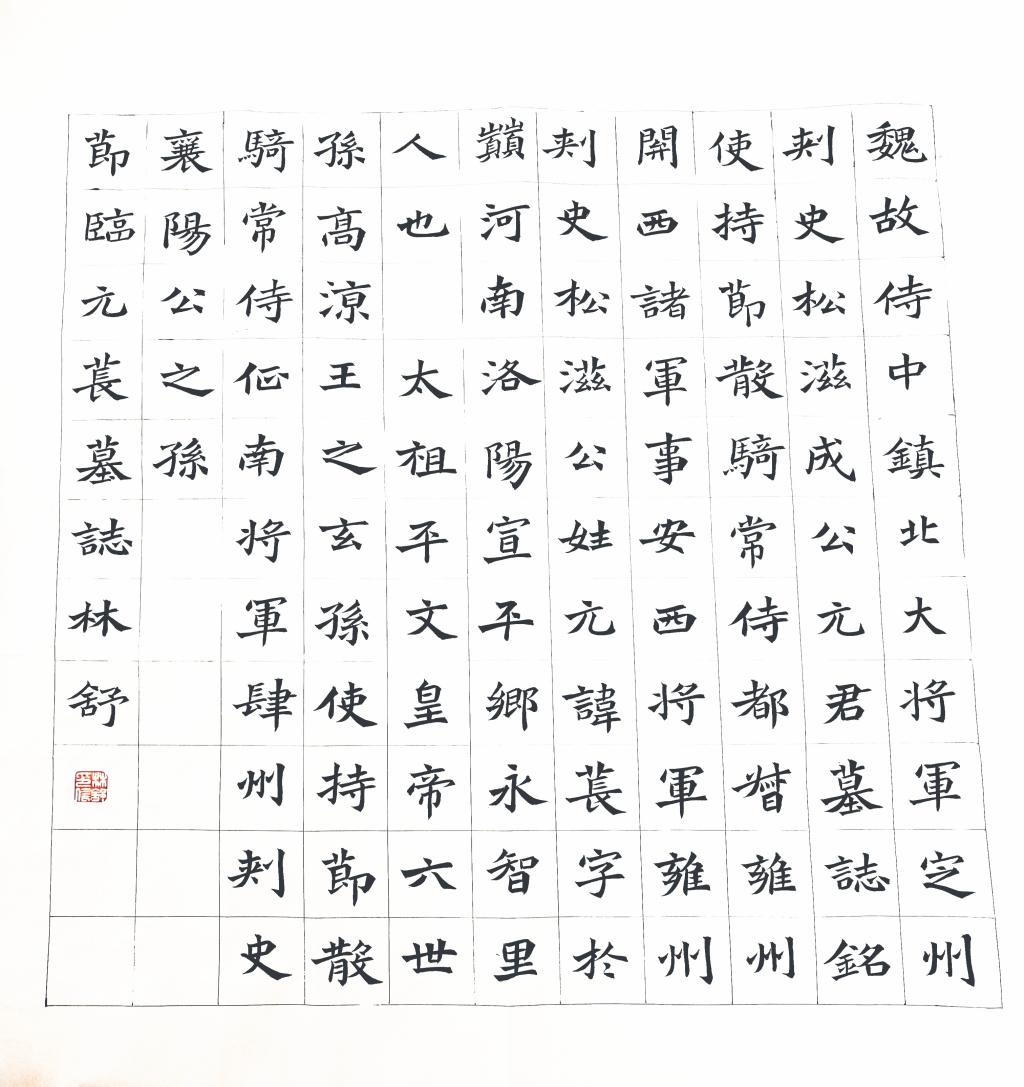 魏故侍中鎮北大将軍㝎州
刾史松滋成公元君墓誌銘
使持節散騎常侍都督雍州
關西諸軍事安西将軍雍州
刾史松滋公姓元諱萇字於
巔河南洛陽宣平鄉永智里
人也 太祖平文皇帝六世
孫髙涼王之玄孫使持節散
騎常侍征南将軍肆州刾史
襄陽公之孫
節臨元萇墓誌林舒